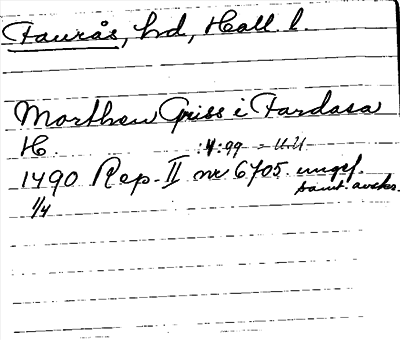 Faurås, hd, Hall. l.
Morthen Griss i Fardasa
H. :4:99 = U.U
1490 Rep. II nr 6705. ungef.
1/4 samt. avskr.